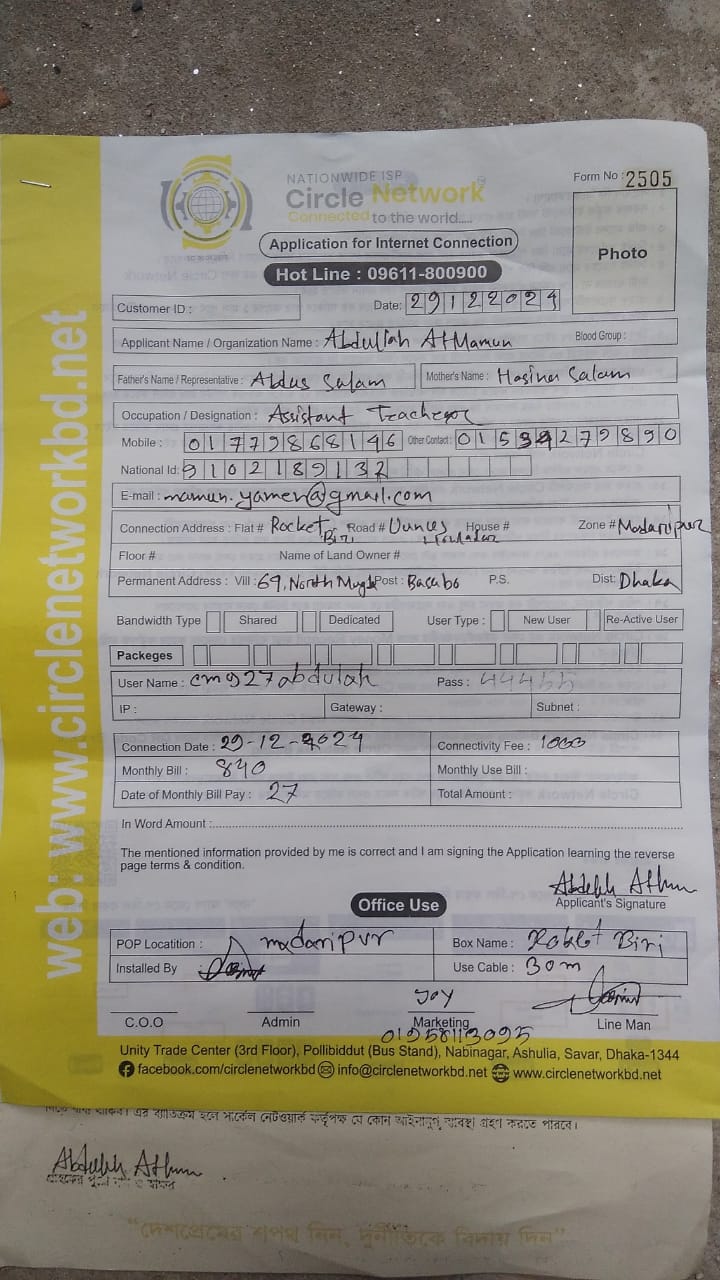 NATIONWIDE ISP
Circle Network
Connected to the world.....
Form No : 2505
Application for Internet Connection
Hot Line : 09611-800900
Photo
Customer ID :
Date: 29122024
Applicant Name / Organization Name : Abdullah Al Mamun Blood Group :
Father's Name / Representative : Abdus Salam Mother's Name : Hasina Salam
Occupation / Designation : Assistant Teacher
Mobile : 01779868146 Other Contact : 01534279890
National Id: 9102189132
E-mail : mamun.yamen@gmail.com
Connection Address : Flat # Rocket Biri Road # House # Zone # Madaripur
Floor # Name of Land Owner #
Permanent Address : Vill : 69, North Mugda Post : Basabo P.S. Dist: Dhaka
Bandwidth Type Shared Dedicated User Type : New User Re-Active User
Packeges
User Name : cm927abdulah Pass : 44455
IP : Gateway : Subnet :
Connection Date : 29-12-2024 Connectivity Fee : 1000
Monthly Bill : 840 Monthly Use Bill :
Date of Monthly Bill Pay : 27 Total Amount :
In Word Amount :
The mentioned information provided by me is correct and I am signing the Application learning the reverse
page terms & condition.
Applicant's Signature
Office Use
POP Locatition : madaripur Box Name : Roket Biri
Installed By Use Cable : 30m
Joy
C.O.O Admin Marketing Line Man
01958113095
Unity Trade Center (3rd Floor), Pollibiddut (Bus Stand), Nabinagar, Ashulia, Savar, Dhaka-1344
facebook.com/circlenetworkbd info@circlenetworkbd.net www.circlenetworkbd.net
web: www.circlenetworkbd.net
এর ব্যতিক্রম হলে সার্কেল নেটওয়ার্ক কর্তৃপক্ষ যে কোন আইনানুগ ব্যবস্থা গ্রহণ করতে পারবে।
"দেশপ্রেমের শপথ নিন, দুর্নীতিকে বিদায় দিন"